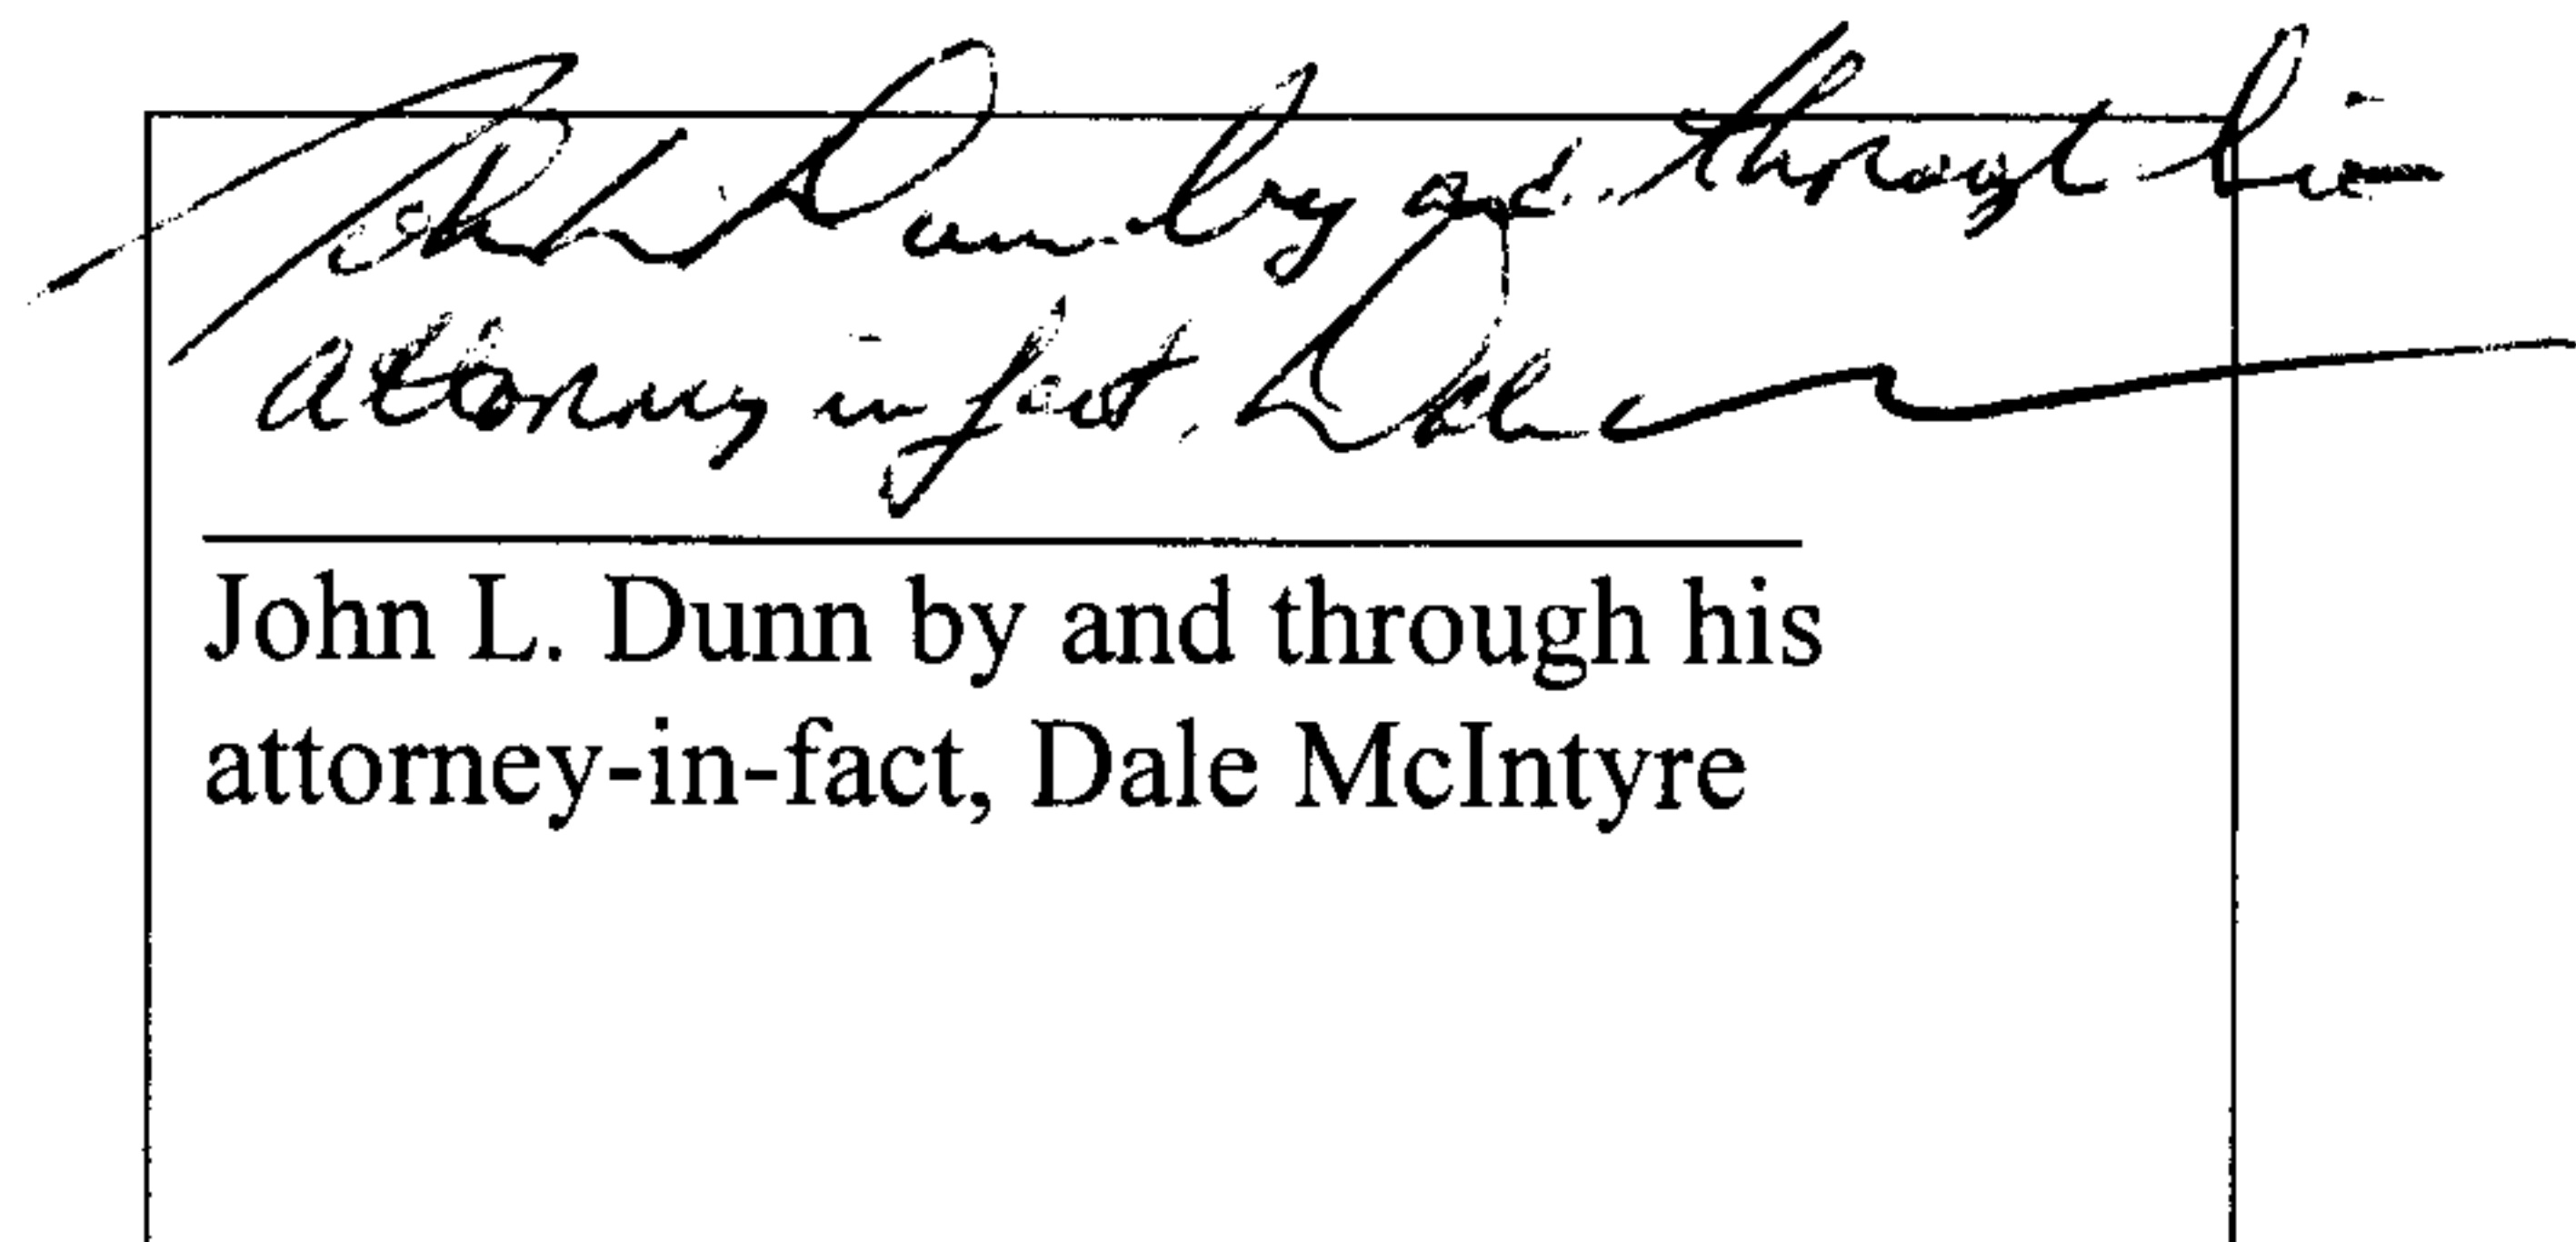 John L Dunn by and through his
attorney in fact, Dale
John L. Dunn by and through his
attorney-in-fact, Dale McIntyre